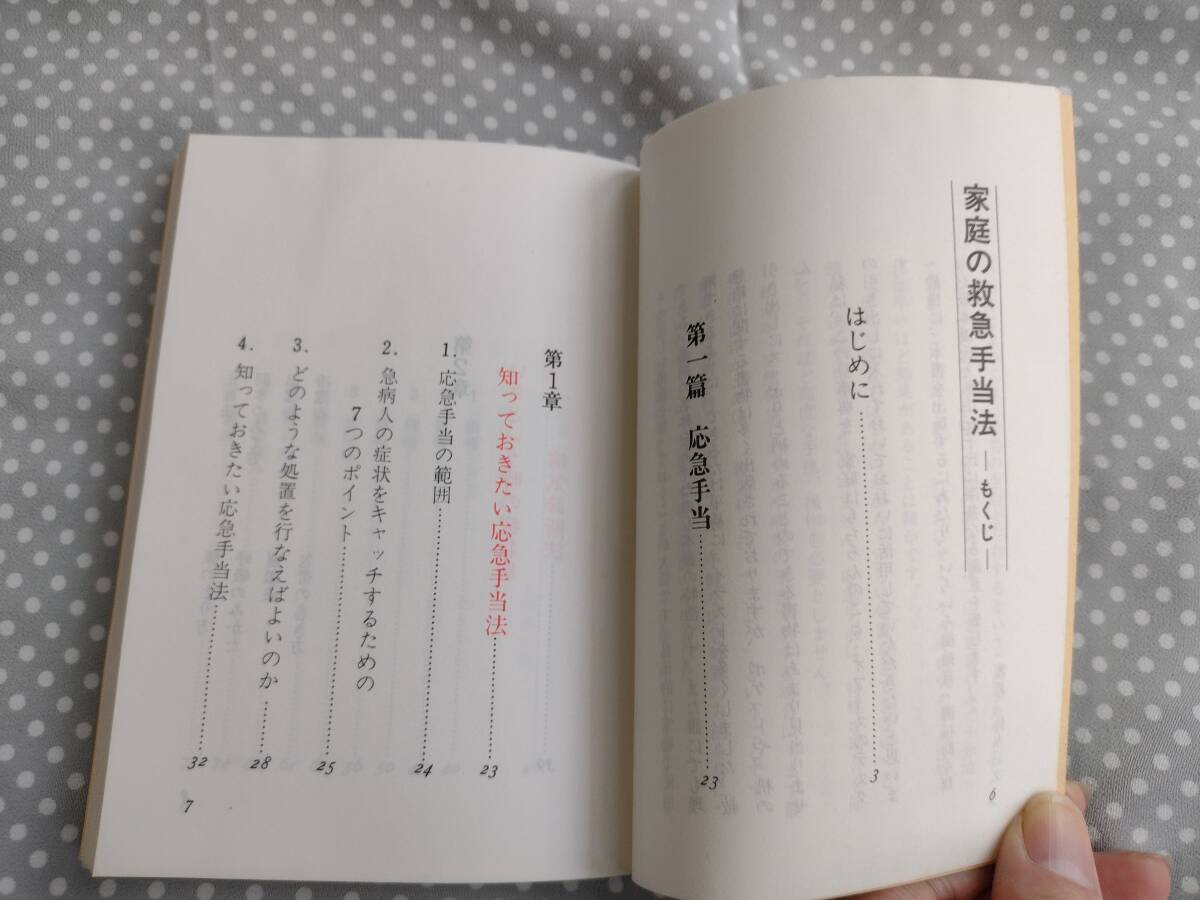 家庭の救急手当法 ―もくじ―
はじめに……………………3
第一篇 応急手当……………………23
6
第1章
知っておきたい応急手当法……………23
1. 応急手当の範囲……………………24
2. 急病人の症状をキャッチするための
7つのポイント……………………25
3. どのような処置を行なえばよいのか………28
4. 知っておきたい応急手当法……………32
7